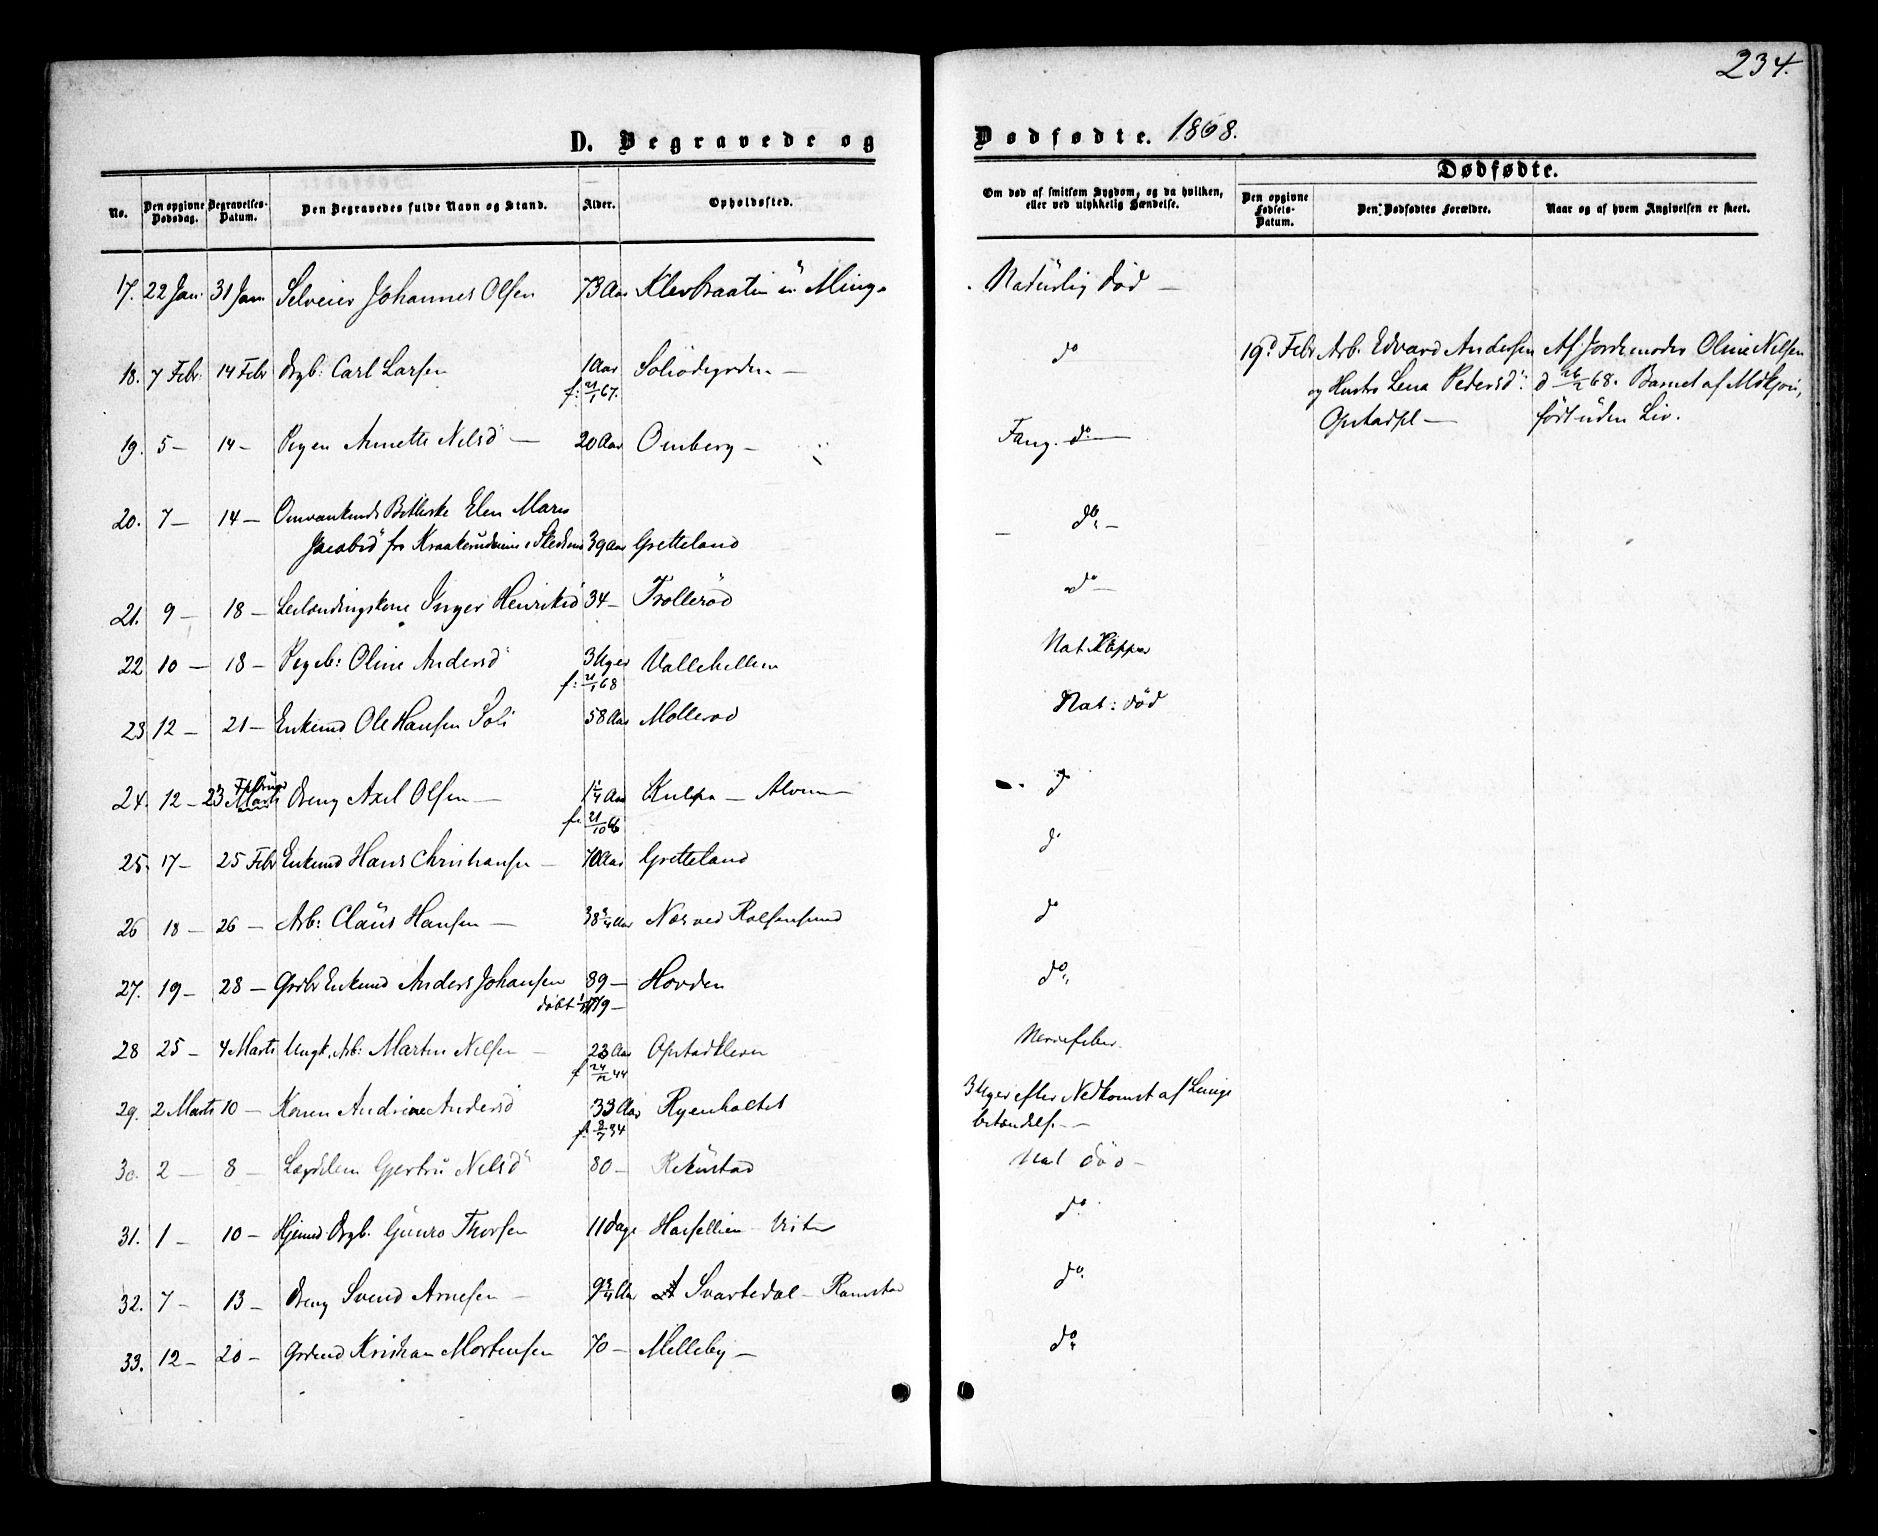 234.
D. Begravede og Dødfødte. 1868.
Dødfødte.
No. Den opgivne Dødsdag. Begravelses-Datum. Den Begravedes fulde Navn og Stand. Alder. Opholdssted. Om død af smitsom Sygdom, og da hvilken, eller ved ulykkelig Hændelse. Den opgivne Fødsels-Datum. Den Dødfødtes Forældre. Naar og af hvem Angivelsen er skeet.
17. 22 Jan. 31 Jan Selveier Johannes Olsen 73 Aar Klevbraaten u. Minge Naturlig død —
18. 7 Febr. 14 Febr Drgb: Carl Larsen 1 Aar Soliødegården — do
f: 21/1 67.
19d Febr Arb. Edvard Andersen Af Jordemoder Oline Nilsen
og Hustr Lena Pedersd: d 26/2 68. Barnet af Mdkjøn,
Opstadpl — født uden Liv.
19. 5 — 14 — Pigen Annette Nelsd — 20 Aar Omberg — Fang. do —
20. 7 — 14 — Omvankende Betlerske Elen Marie
Jacobsd fra Kraakerudeine i 39 Aar Gretteland do —
21. 9 — 18 — Inger Henriksd 34 — Trollerød do —
22 10 — 18 — Pigeb: Oline Andersd 3 Uger Vallehellen Nat. Kopper
f: 21/1 68
23 12 — 21 — Enkemd Ole Hansen Soli 58 Aar Møllerød Nat: død
24. 12 — 23 Februar Marts Dreng Axel Olsen — 1 1/4 Aar Kulpa — Alvim — do
f. 21/10 66
25. 17 — 25 Febr Enkemd Hans Christiansen — 70 Aar Gretteland do
26 18 — 26 — Arb: Claus Hansen — 38 3/4 Aar Nes ved Rolfsøsund do
27. 19 — 28 — Grdbr Enkemd Anders Johansen 89 — Hovden do
døbt
28 25 — 4 Marts Ungk. Arb: Martin Nelsen — 23 Aar Opstadkleven Nervefeber.
f 24/12 44
29. 2 Marts 10 — Karen Andrine Andersd 33 Aar Ryenholtet 3 Uger efter Nedkomst af Lunge
betændelse. —
f. 8/7 34
30. 2 — 8 — Lægdslem Gjertru Nelsd 80 — Rekustad Nat død —
31. 1 — 10 — Hjemd Drgb. Gunro Thorsen 11 Dage Hasellien Visten do
32. 7 — 13 — Dreng Svend Arnesen — 9 3/4 Aar Svartedal — Ramstad do
33. 12 — 20 — Grdmd Kristian Mortensen 70 — Melleby — do